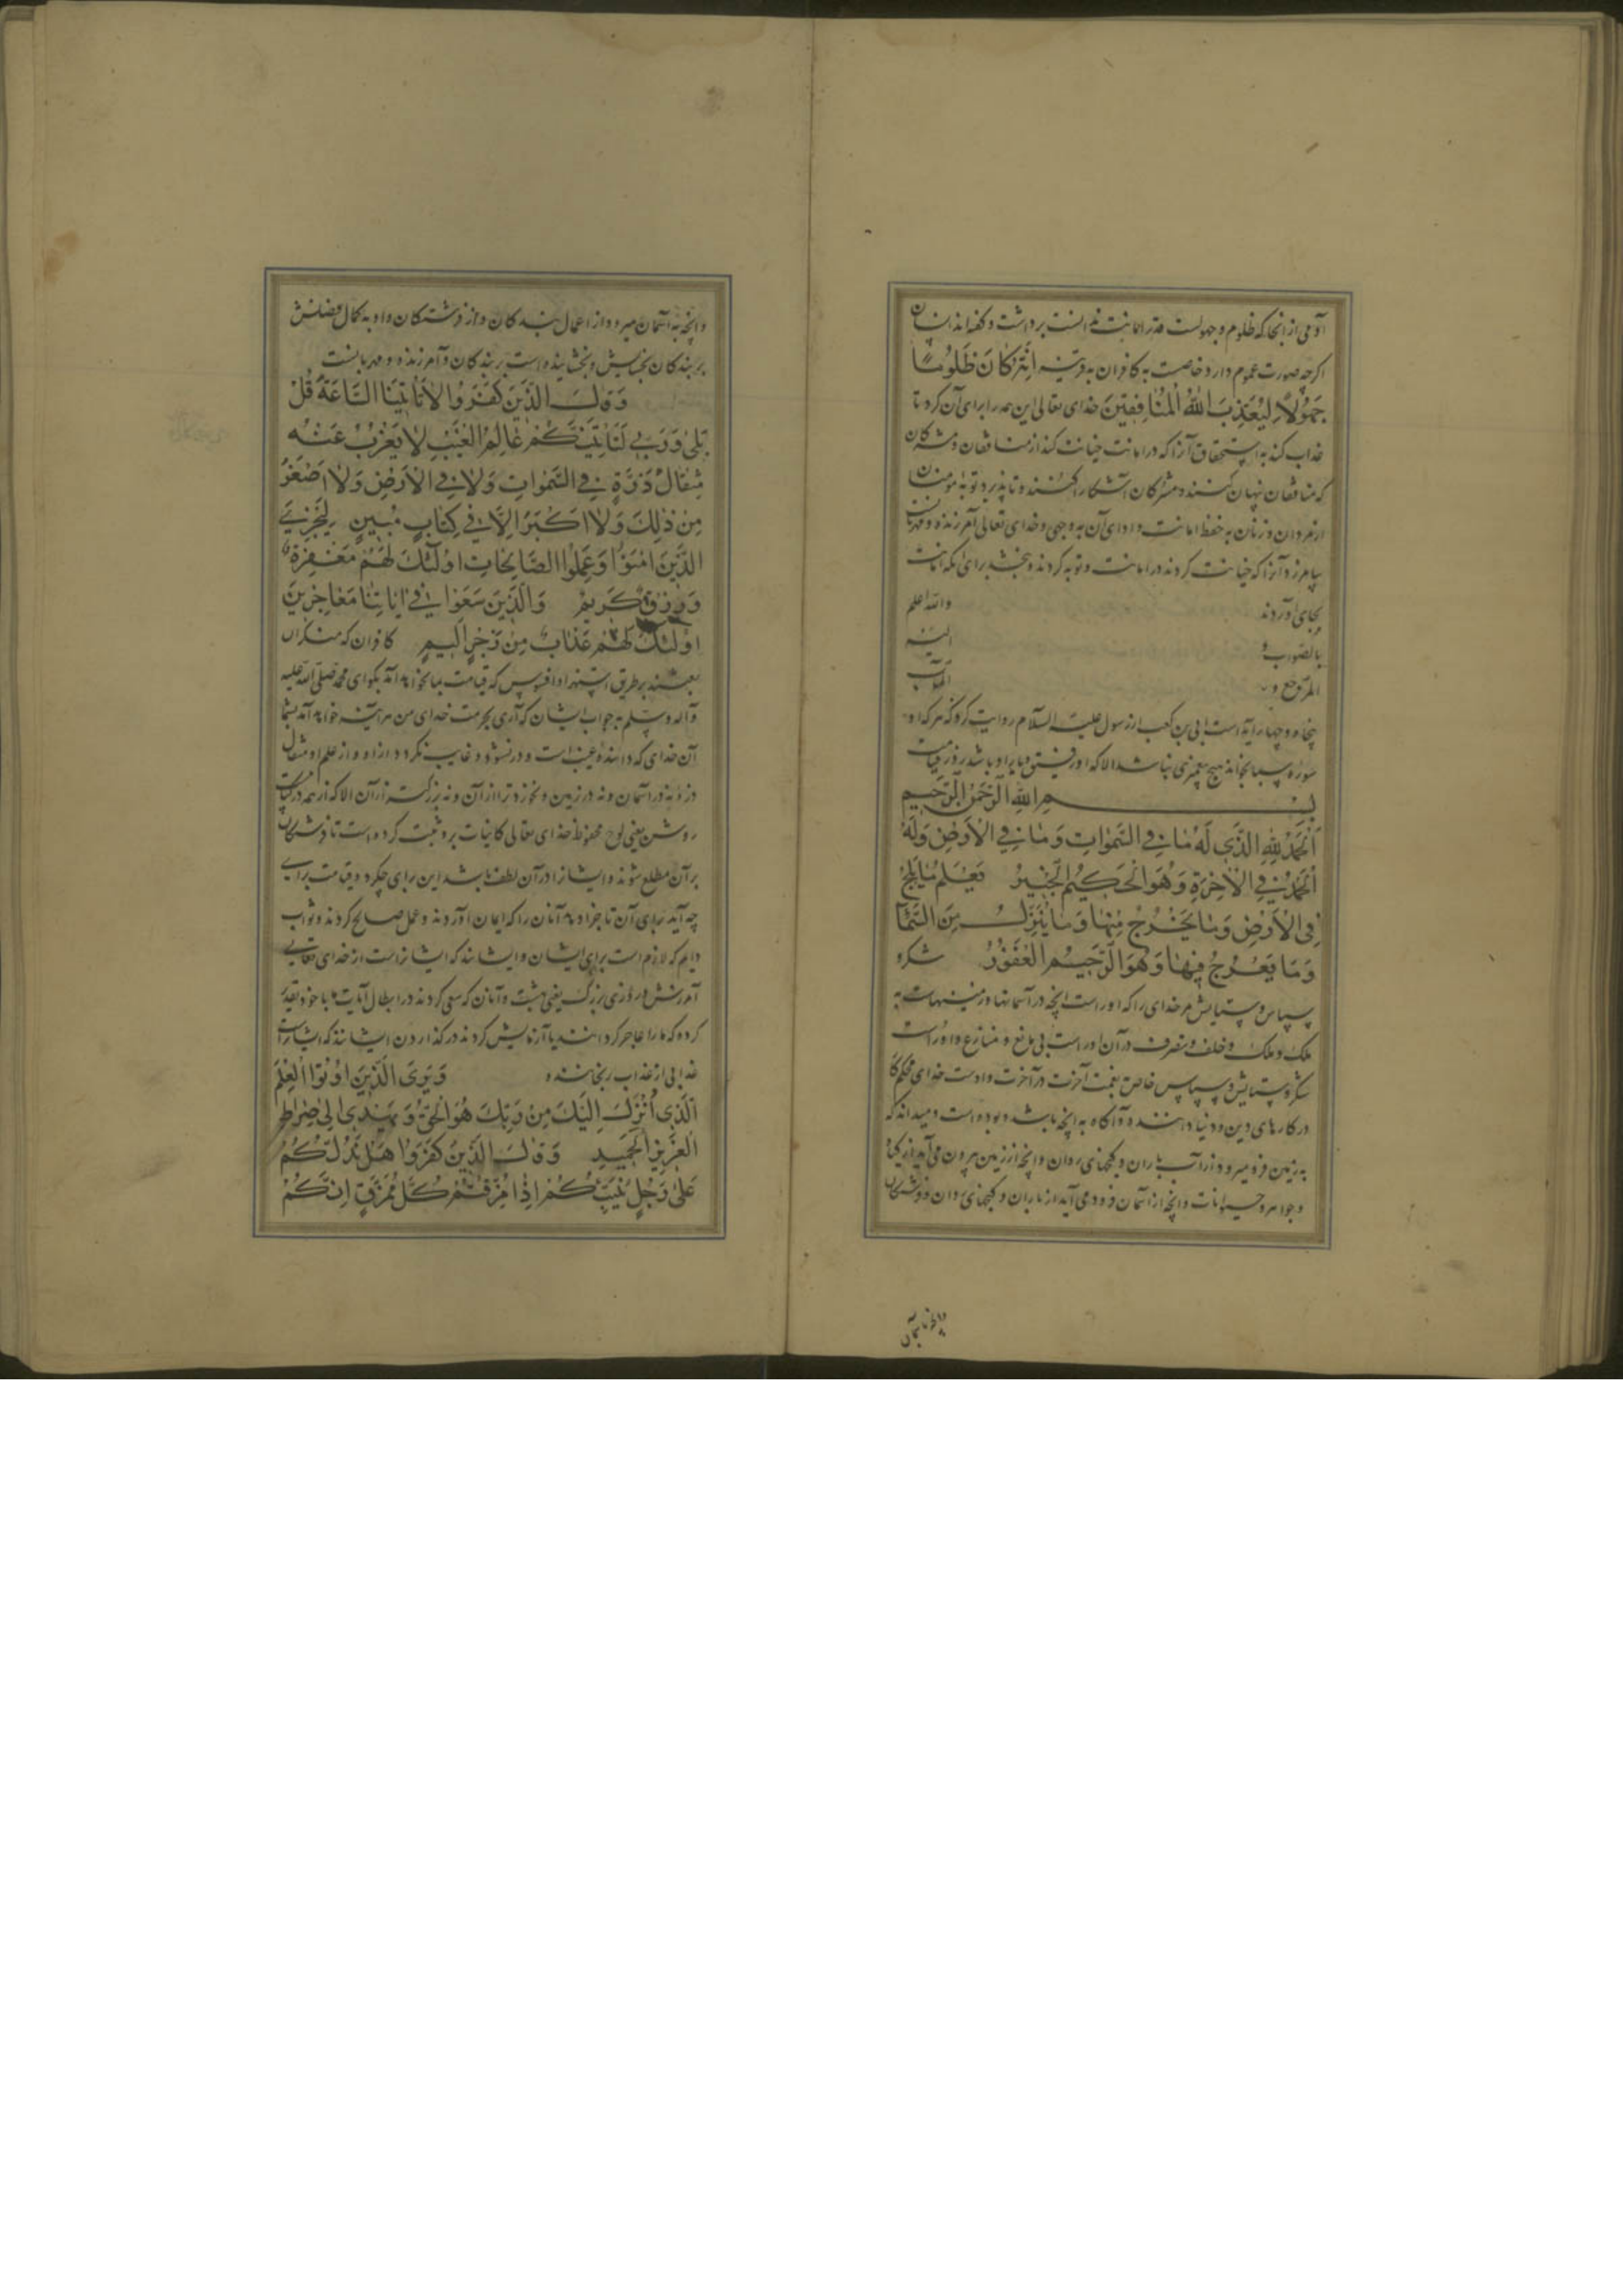 آدمی از آنجا که ظلوم و جهولست قدر امانت ندانست برداشت و گفته‌اند انسان
اگرچه صورت عموم دارد خاصست به کافران به قرینه اِنَّهُ كَانَ ظَلُومًا
جَهُولًا لِيُعَذِّبَ اللهُ الْمُنَافِقِينَ خدای تعالی این همه را برای آن کرد تا
عذاب کند به استحقاق آنرا که در امانت خیانت کند از منافقان و مشرکان
که منافقان نهان کنند و مشرکان آشکارا کنند و تا پذیرد توبه مومنان
از مردان و زنان به حفظ امانت و ادای آن به وجهی و خدای تعالی آمرزنده و مهربانست
بیامرزد آنرا که خیانت کردند در امانت و توبه کردند و ببخشد برای آنکه امانت
بجای آوردند والله اعلم
بالصواب و الیه
المرجع و المآب
پنجاه و چهار آیه است ابی بن کعب از رسول علیه السلام روایت کرد که هر که او
سوره سبا بخواند هیچ پیغمبری نباشد الا که او رفیق و یار او باشد روز قیامت
بِسْمِ اللهِ الرَّحْمٰنِ الرَّحِيمِ
اَلْحَمْدُ لِلّٰهِ الَّذِي لَهُ مَا فِي السَّمٰوَاتِ وَمَا فِي الْاَرْضِ وَلَهُ
الْحَمْدُ فِي الْاٰخِرَةِ وَهُوَ الْحَكِيمُ الْخَبِيرُ يَعْلَمُ مَا يَلِجُ
فِي الْاَرْضِ وَمَا يَخْرُجُ مِنْهَا وَمَا يَنْزِلُ مِنَ السَّمَآءِ
وَمَا يَعْرُجُ فِيهَا وَهُوَ الرَّحِيمُ الْغَفُورُ شکر و
سپاس و ستایش مر خدای را که او راست آنچه در آسمانها و زمینهاست به
ملک و ملک و خلف و تصرف در آن او راست بی مانع و منازع و او راست
شکر و ستایش و سپاس خاص بنعمت آخرت در آخرت و اوست خدای محکم کار
در کارهای دین و دنیا داننده و آگاه به آنچه باشد و بوده است و میداند که
به زمین فرو میرود از آب باران و گنجهای روان و آنچه از زمین بیرون می آید از گیاه
و جواهر و حیوانات و آنچه از آسمان فرود می آید از باران و گنجهای روان و فرشتگان
وآنچه به آسمان
وآنچه به آسمان میرود از اعمال بندگان و از فرشتگان و او به کمال فضلش
بر بندگان بخشایش و بخشاینده است بر بندگان و آمرزنده و مهربانست
وَقَالَ الَّذِينَ كَفَرُوا لَا تَأْتِينَا السَّاعَةُ قُلْ
بَلٰى وَرَبِّي لَتَأْتِيَنَّكُمْ عَالِمِ الْغَيْبِ لَا يَعْزُبُ عَنْهُ
مِثْقَالُ ذَرَّةٍ فِي السَّمٰوَاتِ وَلَا فِي الْاَرْضِ وَلَا اَصْغَرُ
مِنْ ذٰلِكَ وَلَا اَكْبَرُ اِلَّا فِي كِتَابٍ مُبِينٍ لِيَجْزِيَ
الَّذِينَ اٰمَنُوا وَعَمِلُوا الصَّالِحَاتِ اُولٰئِكَ لَهُمْ مَغْفِرَةٌ
وَرِزْقٌ كَرِيمٌ وَالَّذِينَ سَعَوْا فِي اٰيَاتِنَا مُعَاجِزِينَ
اُولٰئِكَ لَهُمْ عَذَابٌ مِنْ رِجْزٍ اَلِيمٍ کافران که منکران
بعثند بر طریق استهزا و افسوس که قیامت بما نخواهد آمد بگو ای محمد صلی الله علیه
و آله و سلم به جواب ایشان که آری بحرمت خدای من هر آینه خواهد آمد بشما
آن خدای که داننده غیب است و دور نشود و غایب نگردد از او و از علم او مثقال
ذره نه در آسمان و نه در زمین و نه خردتر از آن و نه بزرگتر از آن الا که از همه در کتاب
روشن یعنی لوح محفوظ خدای تعالی کاینات برو ثبت کرده است تا فرشتگان
بر آن مطلع شوند و ایشانرا در آن لطف باشد این برای چکرد و قیامت برای
چه آید برای آن تا جزا دهد آنان را که ایمان آوردند و عمل صالح کردند و ثواب
دایم که لازم است برای ایشان و ایشانند که ایشانراست از خدای تعالی
آمرزش و روزی بزرگ یعنی بهشت و آنان که سعی کردند در ابطال آیات ما با خود تقدیر
کرده که ما را عاجز کردانند یا آزمایش کردند در گذاردن ایشانند که ایشانراست
عذابی از عذاب رنجاننده وَيَرَى الَّذِينَ اُوتُوا الْعِلْمَ
الَّذِي اُنْزِلَ اِلَيْكَ مِنْ رَبِّكَ هُوَ الْحَقَّ وَيَهْدِي اِلٰى صِرَاطِ
الْعَزِيزِ الْحَمِيدِ وَقَالَ الَّذِينَ كَفَرُوا هَلْ نَدُلُّكُمْ
عَلٰى رَجُلٍ يُنَبِّئُكُمْ اِذَا مُزِّقْتُمْ كُلَّ مُمَزَّقٍ اِنَّكُمْ